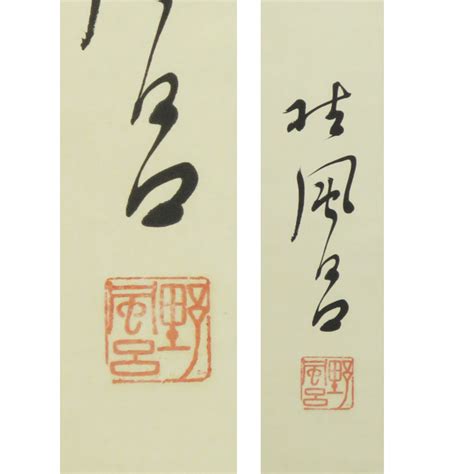 呂
野
風呂
野風呂
野
風呂